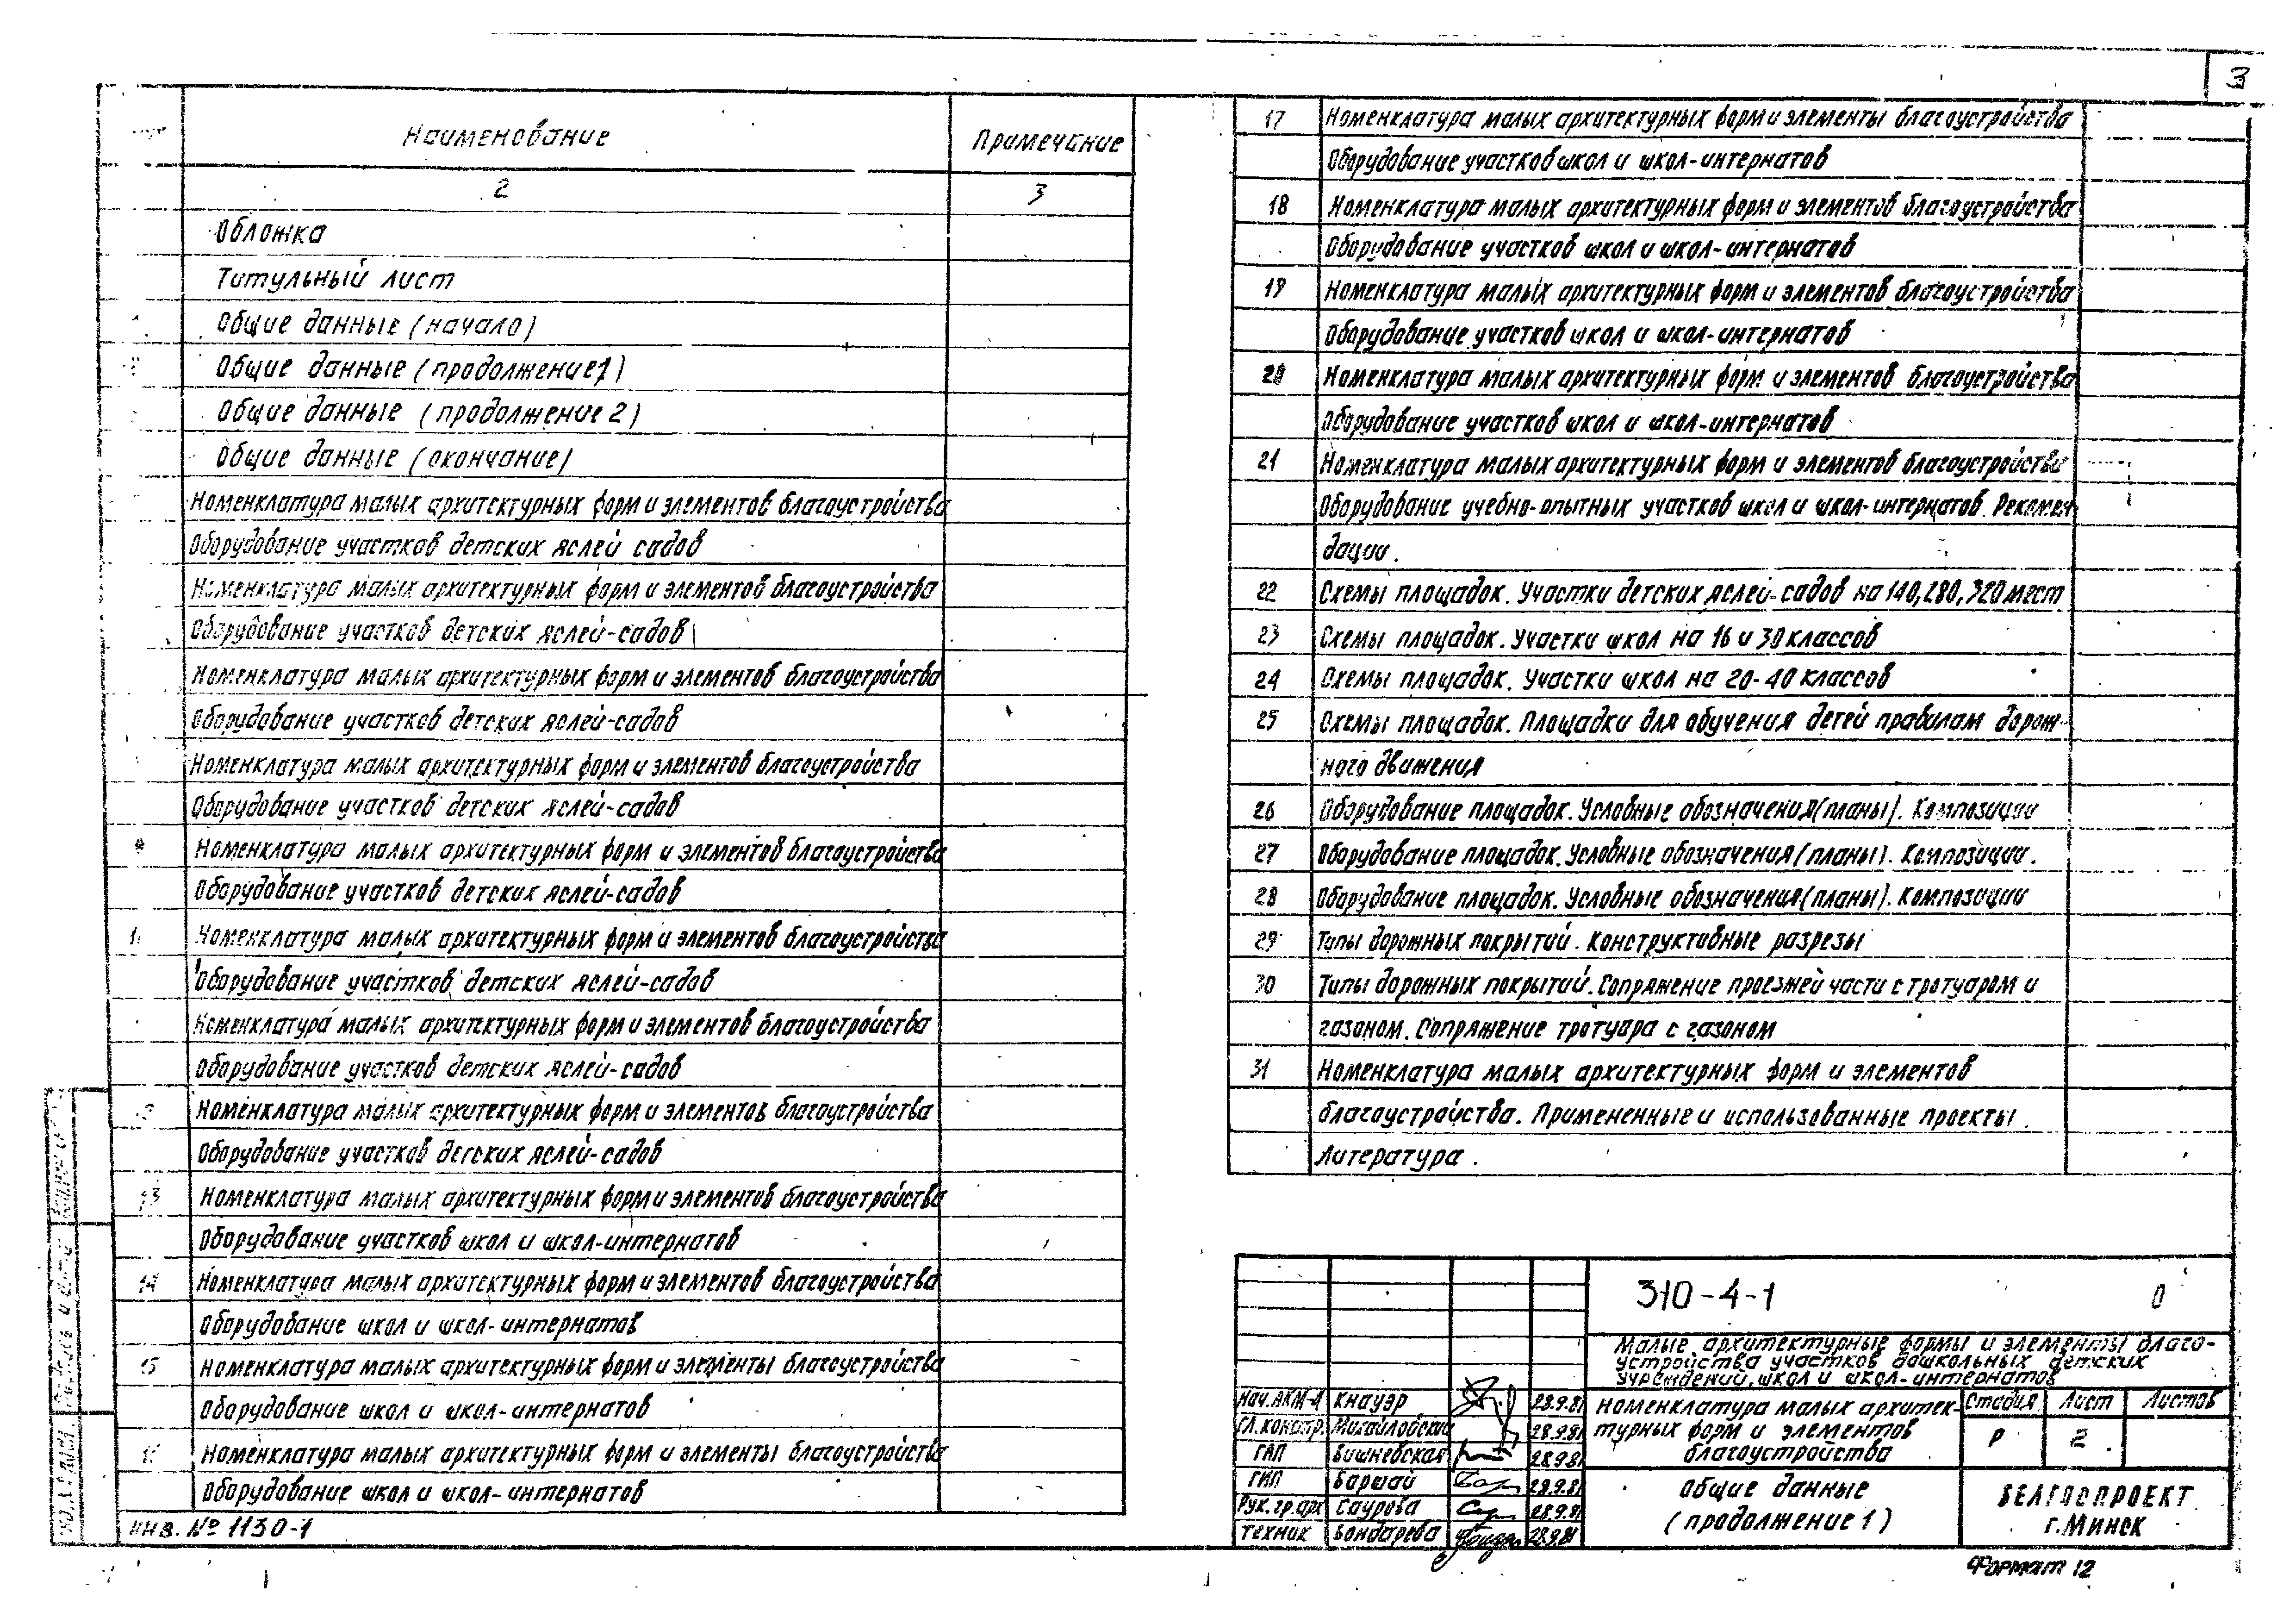 3
Наименование Примечание
2 3
Обложка
Титульный лист
Общие данные (начало)
Общие данные (продолжение 1)
Общие данные (продолжение 2)
Общие данные (окончание)
Номенклатура малых архитектурных форм и элементов благоустройства
Оборудование участков детских яслей садов
Номенклатура малых архитектурных форм и элементов благоустройства
Оборудование участков детских яслей-садов
Номенклатура малых архитектурных форм и элементов благоустройства
Оборудование участков детских яслей-садов
Номенклатура малых архитектурных форм и элементов благоустройства
Оборудование участков детских яслей-садов
Номенклатура малых архитектурных форм и элементов благоустройства
Оборудование участков детских яслей-садов
Номенклатура малых архитектурных форм и элементов благоустройства
Оборудование участков детских яслей-садов
Номенклатура малых архитектурных форм и элементов благоустройства
Оборудование участков детских яслей-садов
Номенклатура малых архитектурных форм и элементов благоустройства
Оборудование участков детских яслей-садов
13 Номенклатура малых архитектурных форм и элементов благоустройства
Оборудование участков школ и школ-интернатов
14 Номенклатура малых архитектурных форм и элементов благоустройства
Оборудование школ и школ-интернатов
15 Номенклатура малых архитектурных форм и элементы благоустройства
Оборудование школ и школ-интернатов
Номенклатура малых архитектурных форм и элементы благоустройства
Оборудование школ и школ-интернатов
инв. № 1130-1
17 Номенклатура малых архитектурных форм и элементы благоустройства
Оборудование участков школ и школ-интернатов
18 Номенклатура малых архитектурных форм и элементов благоустройства
Оборудование участков школ и школ-интернатов
19 Номенклатура малых архитектурных форм и элементов благоустройства
Оборудование участков школ и школ-интернатов
20 Номенклатура малых архитектурных форм и элементов благоустройства
Оборудование участков школ и школ-интернатов
21 Номенклатура малых архитектурных форм и элементов благоустройства
Оборудование учебно-опытных участков школ и школ-интернатов. Рекомен
дации.
22 Схемы площадок. Участки детских яслей-садов на 140, 280, 320 мест
23 Схемы площадок. Участки школ на 16 и 30 классов
24 Схемы площадок. Участки школ на 20-40 классов
25 Схемы площадок. Площадки для обучения детей правилам дорож-
ного движения
26 Оборудование площадок. Условные обозначения (планы). Композиции
27 Оборудование площадок. Условные обозначения (планы). Композиции.
28 Оборудование площадок. Условные обозначения (планы). Композиции
29 Типы дорожных покрытий. Конструктивные разрезы
30 Типы дорожных покрытий. Сопряжение проезжей части с тротуаром и
газоном. Сопряжение тротуара с газоном
31 Номенклатура малых архитектурных форм и элементов
благоустройства. Примененные и использованные проекты.
Литература.
310-4-1 0
Малые архитектурные формы и элементы благо-
устройства участков дошкольных детских
учреждений, школ и школ-интернатов
Нач. АКМ-1 Кнауэр 28.9.81
Гл. констр. Михайловский 28.9.81
ГАП Вишневская 28.9.81
ГИП Баршай 28.9.81
Рук. гр. арх Саурова 28.9.81
техник Бондарева 28.9.81
Номенклатура малых архитек-
турных форм и элементов
благоустройства
Стадия Лист Листов
Р 2
Общие данные
(продолжение 1)
БЕЛГОСПРОЕКТ
г. Минск
Формат 12